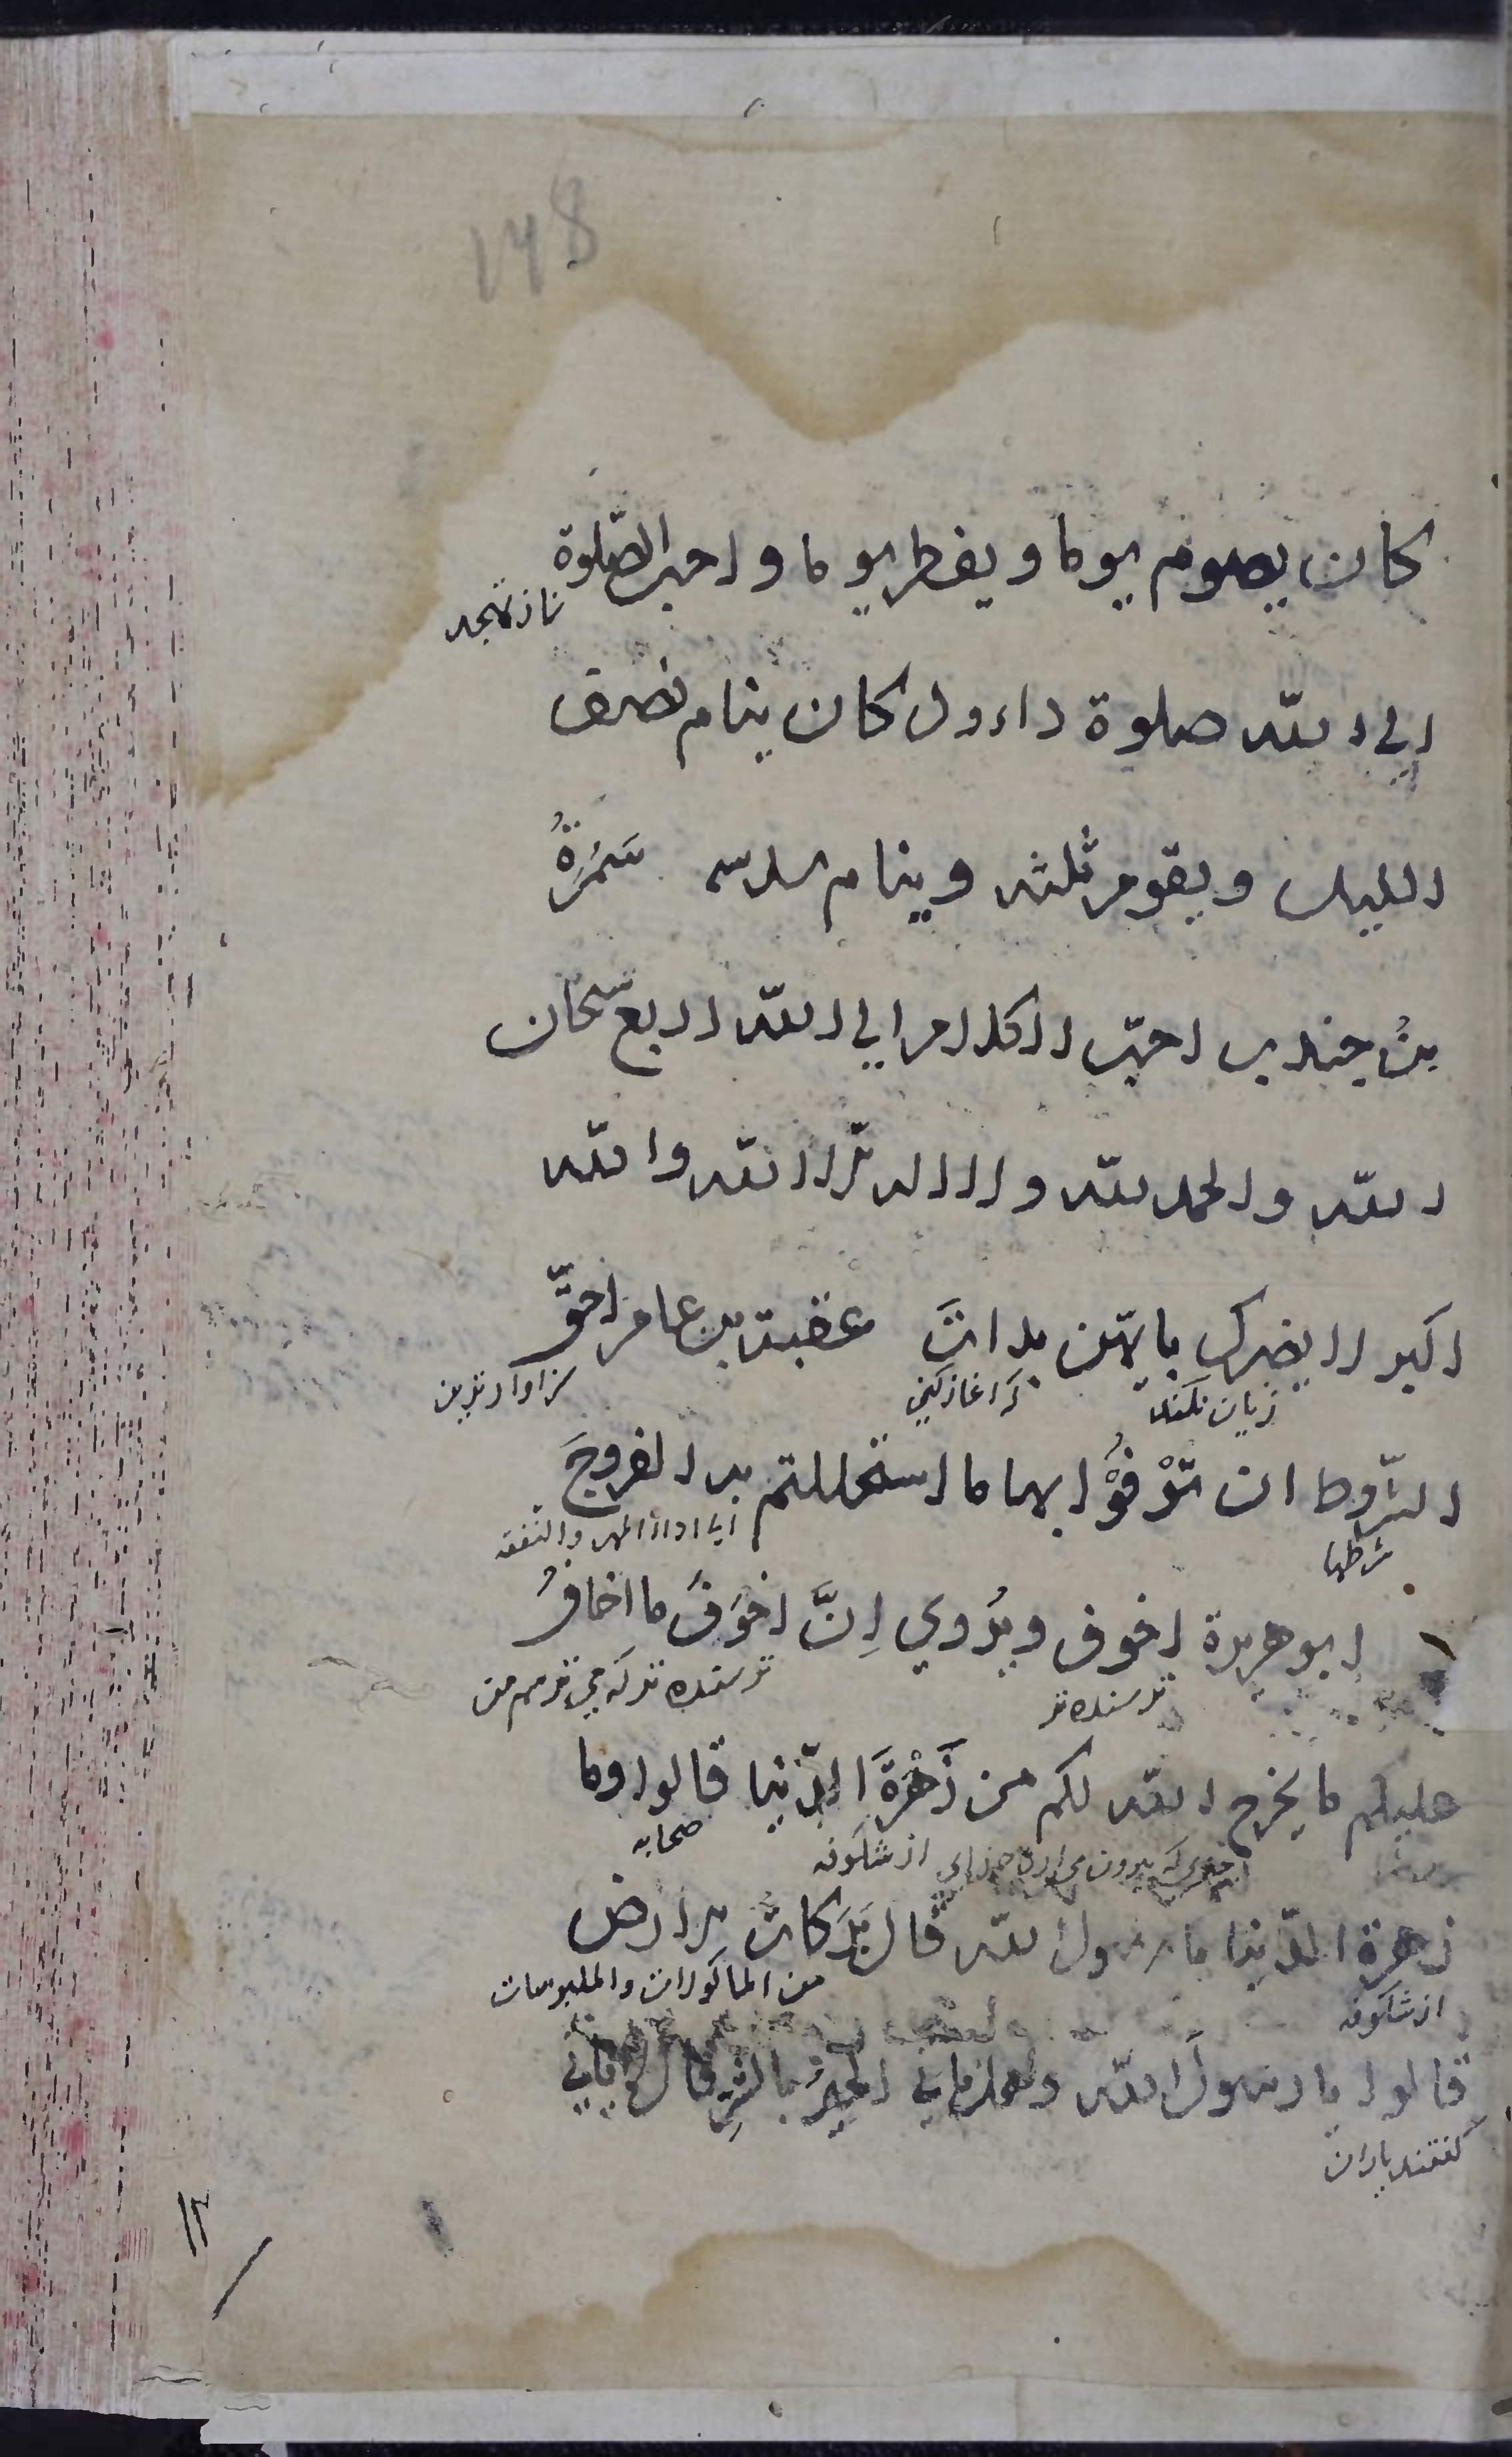 148
كان يصوم يوما ويفطر يوما واحب الصّلوة
نماز تهجد
الى الله صلوة داود كان ينام نصف
الليل ويقوم ثلثه وينام سدسه سَمُرَةُ
بنُ جندب احبّ الكلام الى الله اربع سبحان
الله والحمد لله ولا اله الّا الله والله
اكبر لا يضرك بايّهن بدات عقبة بن عامر احقّ
زيان نكند
كه اغاز كني
سزاوارترين
الشّروط ان تُوْفُوْا بها ما استحللتم به الفروجَ
شرطها
اى اداء المهر والنفقة
ابو هريرة اخوف ويُروي اِنَّ اخوَفَ ما اخافُ
ترسنده تر
ترسنده تر كه مي ترسم من
عليكم ما يخرج الله لكم من زَهْرَةِ الدّنيا قالوا وما
بيرون
از شكوفه
صحابه
زهرة الدّنيا يا رسول الله قال بَرَكات الارض
از شكوفه
من الماكولات والملبوسات
قالوا يا رسولَ الله وهل ياتي الخيرُ بالشرِ قال لا ياتي
گفتند ياران
١٢